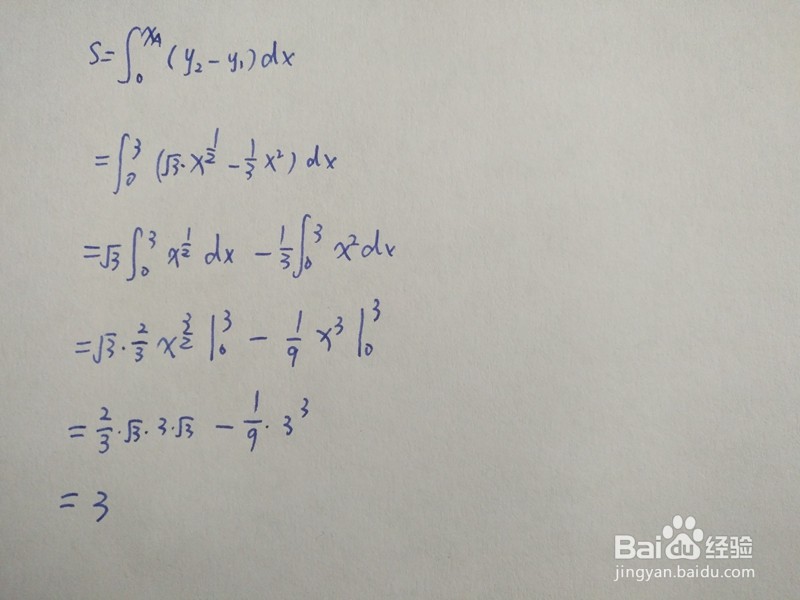 S=∫₀^{x_A} (y₂-y₁)dx
=∫₀³ (√3·x^{1/2} - 1/3 x²) dx
=√3 ∫₀³ x^{1/2} dx - 1/3 ∫₀³ x² dx
=√3·2/3 x^{3/2} |₀³ - 1/9 x³ |₀³
=2/3·√3·3·√3 - 1/9·3³
=3
Baidu经验
jingyan.baidu.com